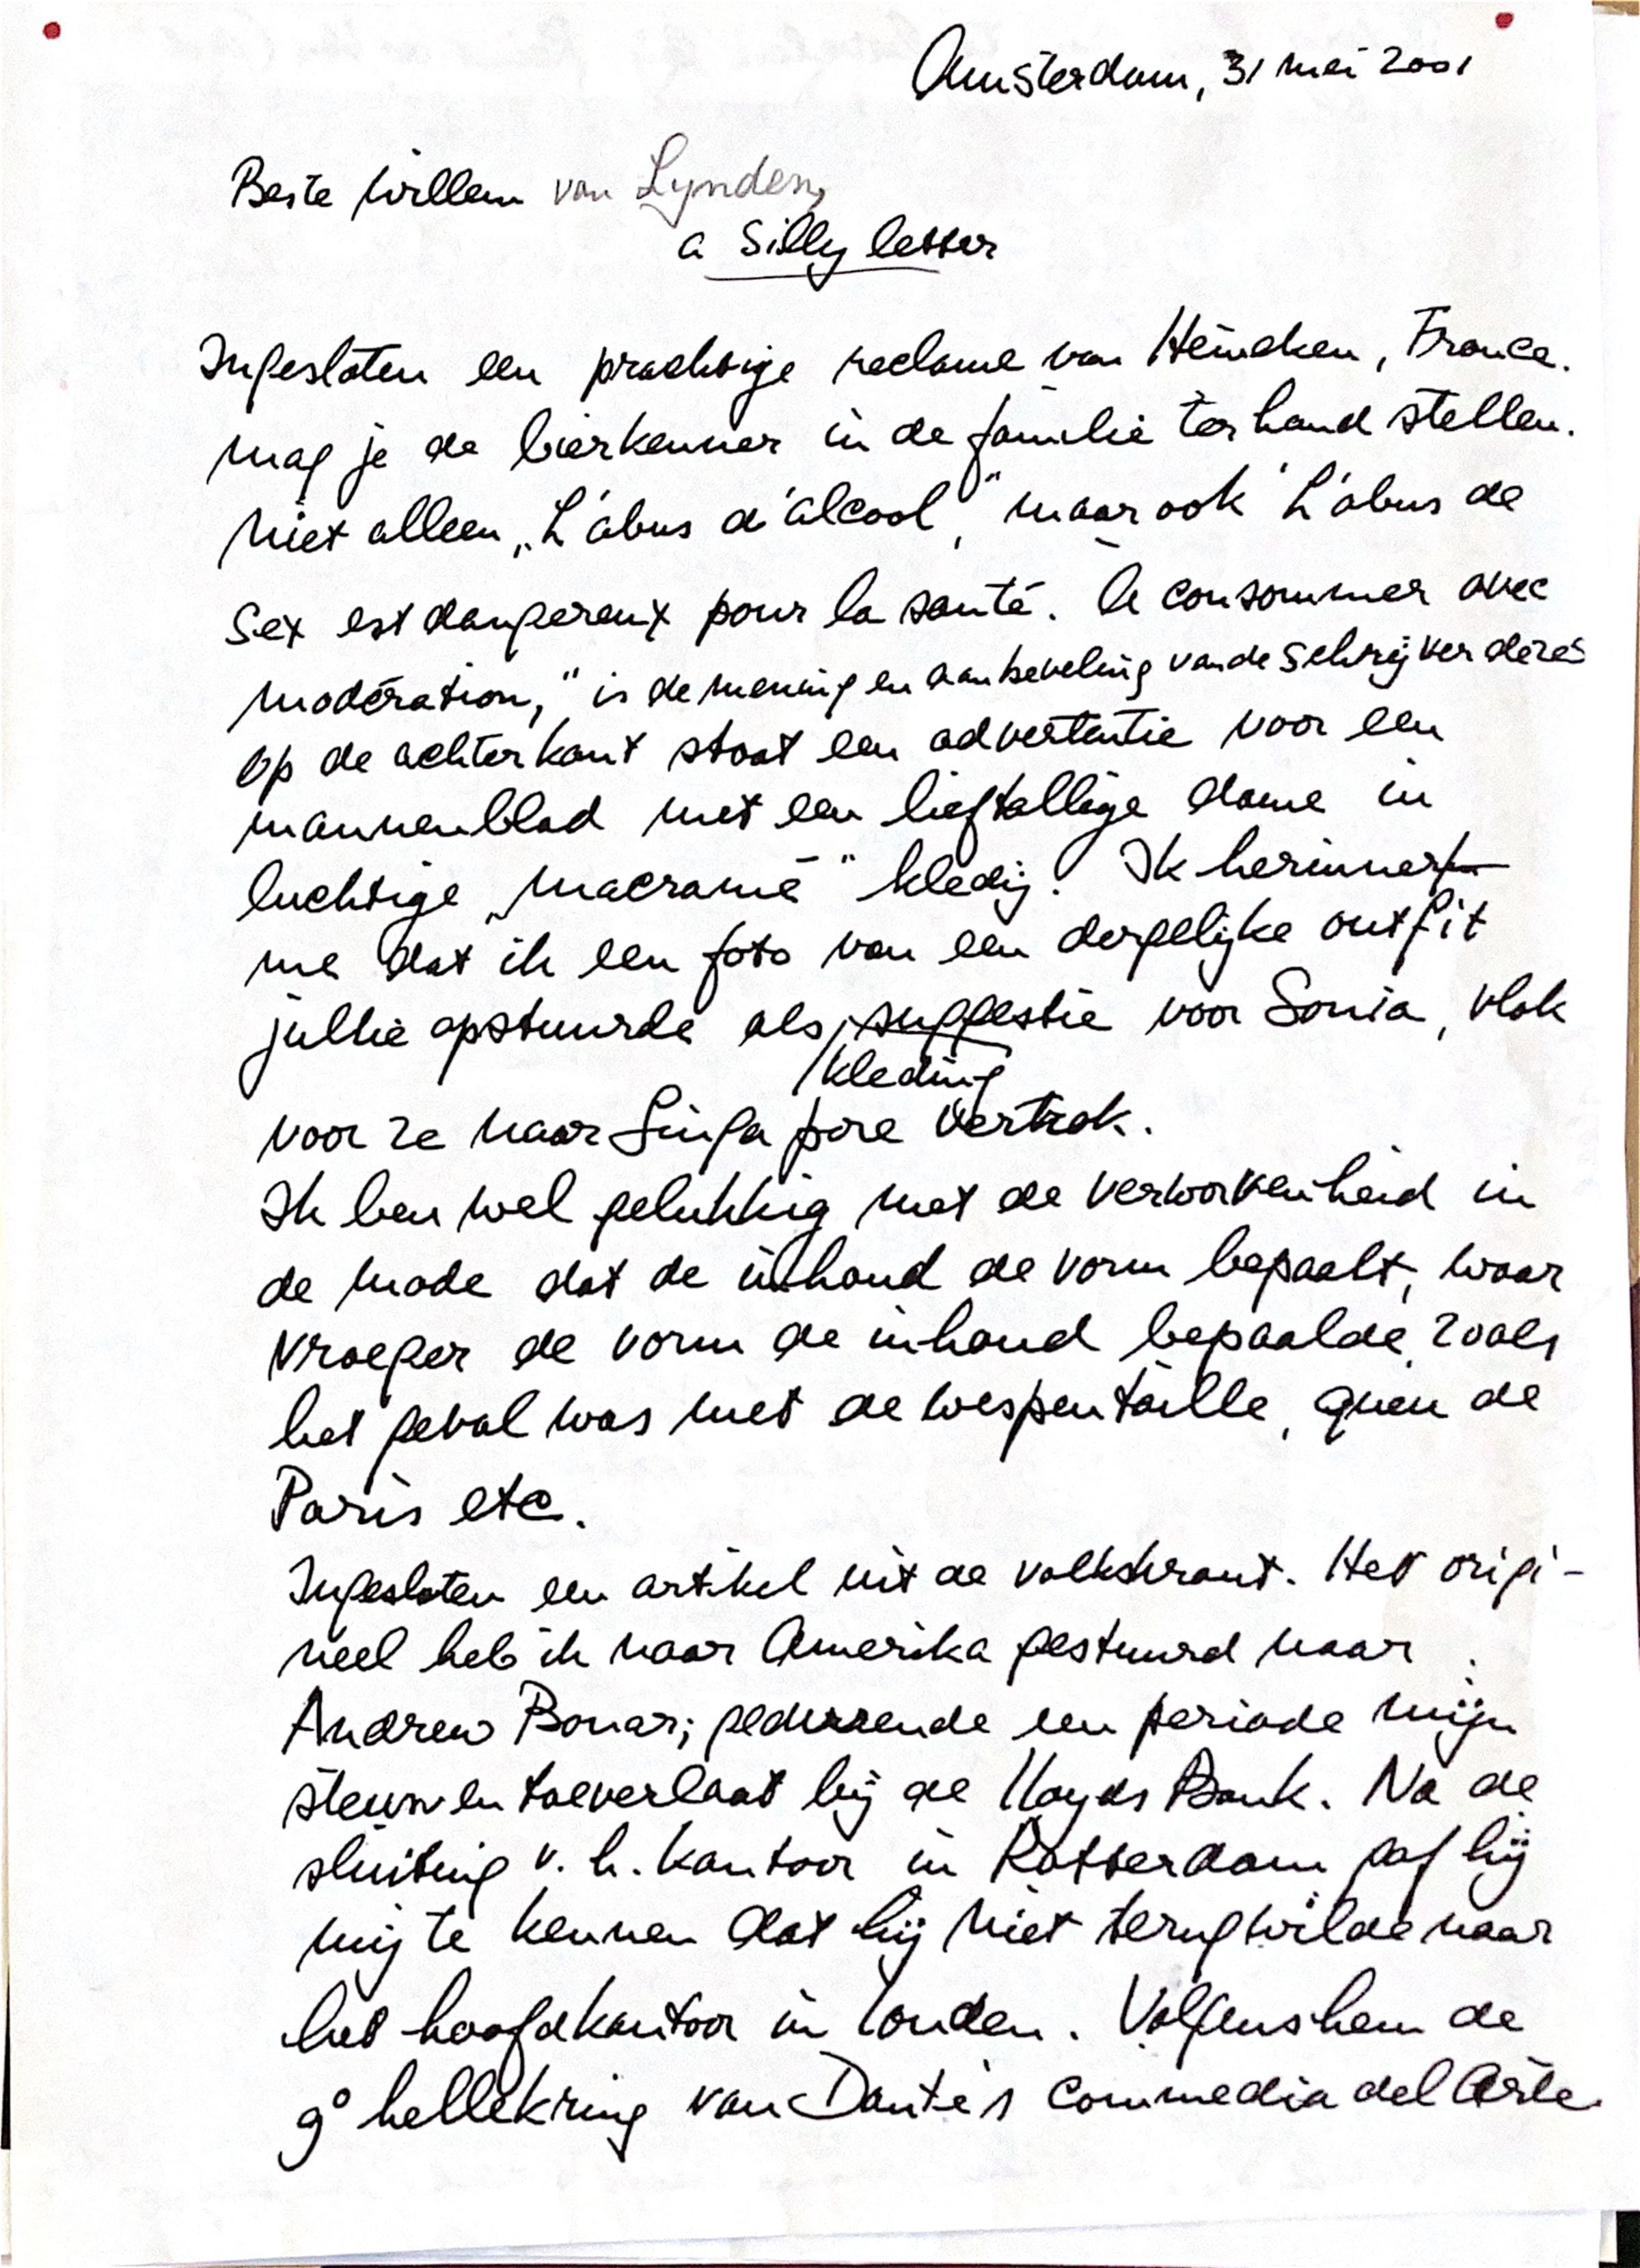 Amsterdam, 31 mei 2001
Beste Willem van Lynden,
a silly letter
Ingesloten een prachtige reclame van Heineken, France.
mag je de bierkenner in de familie ter hand stellen.
Niet alleen „L'abus d'alcool", maar ook L'abus de
sex est dangereux pour la santé. à consommer avec
modération," is de mening en aanbeveling van de schrijver dezes
op de achterkant staat een advertentie voor een
mannenblad met een lieftallige dame in
luchtige „macramé" kledij. Ik herinner
me dat ik een foto van een dergelijke outfit
jullie opstuurde als suggestie voor Sonia, vlak
kleding
voor ze naar Singapore vertrok.
Ik ben wel gelukkig met de verworvenheid in
de mode dat de inhoud de vorm bepaalt, waar
vroeger de vorm de inhoud bepaalde, zoals
het geval was met de wespentaille, queu de
Paris etc.
Ingesloten een artikel uit de volkskrant. Het origi-
neel heb ik naar Amerika gestuurd naar
Andrew Bonar; gedurende een periode mijn
steun en toeverlaat bij de Lloyds Bank. Na de
sluiting v. h. kantoor in Rotterdam gaf hij
mij te kennen dat hij niet terug wilde naar
het hoofdkantoor in Londen. Volgens hem de
9° hellekring van Dante's Commedia del Arte